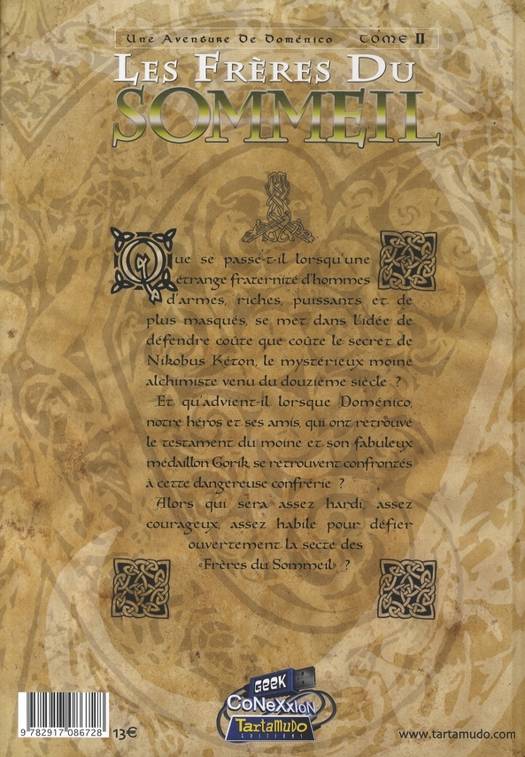 Une Aventure De Doménico TOME II
LES FRÈRES DU
SOMMEIL
Que se passe-t-il lorsqu'une
étrange fraternité d'hommes
d'armes, riches, puissants et de
plus masqués, se met dans l'idée de
défendre coûte que coûte le secret de
Nikobus Kéton, le mystérieux moine
alchimiste venu du douzième siècle ?
Et qu'advient-il lorsque Doménico,
notre héros et ses amis, qui ont retrouvé
le testament du moine et son fabuleux
médaillon Gorik, se retrouvent confrontés
à cette dangereuse confrérie ?
Alors qui sera assez hardi, assez
courageux, assez habile pour défier
ouvertement la secte des
«Frères du Sommeil» ?
GEEK
CoNeXxIoN
TartaMudo
EDITIONS
9 782917 086728
13€
www.tartamudo.com